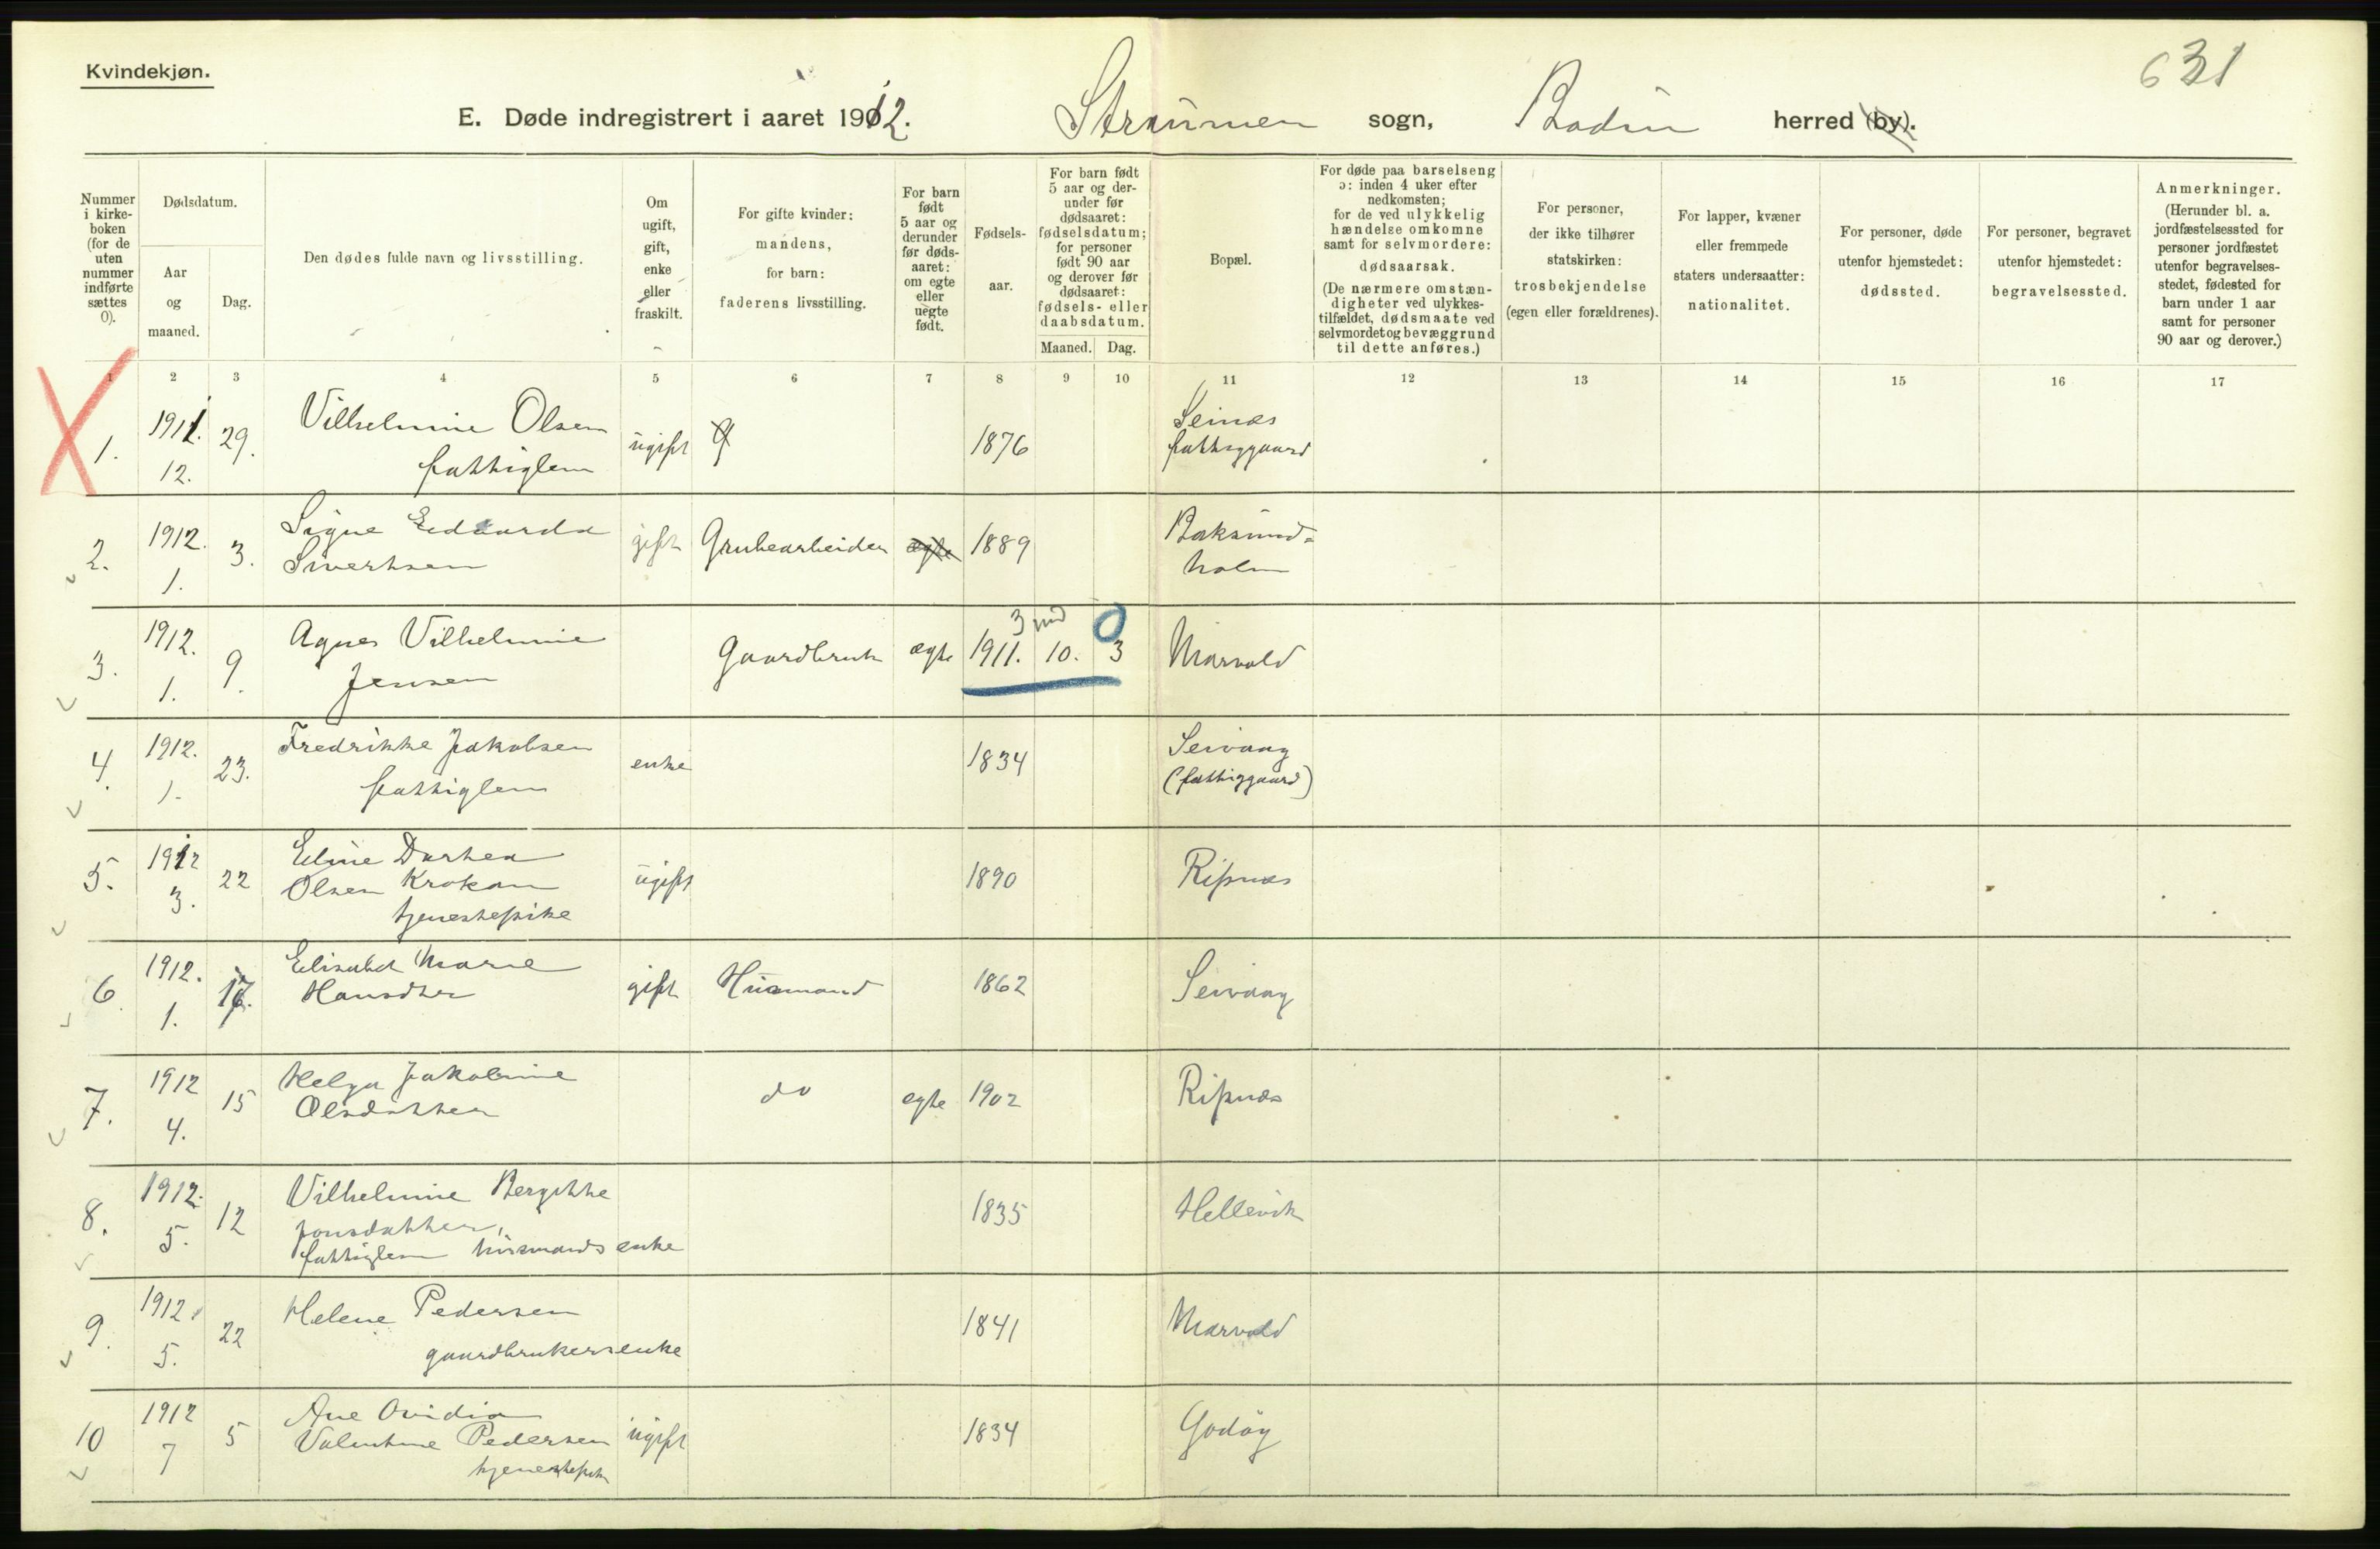 Kvindekjøn.
631
E. Døde indregistrert i aaret 1912. Strømmen sogn, Bodin herred (by).
Nummer i kirke-boken (for de uten nummer indførte sættes 0).
Dødsdatum.
Aar og maaned.
Dag.
Den dødes fulde navn og livsstilling.
Om ugift, gift, enke eller fraskilt.
For gifte kvinder: mandens, for barn: faderens livsstilling.
For barn født 5 aar og derunder før døds-aaret: om egte eller uegte født.
Fødsels-aar.
For barn født 5 aar og der-under før dødsaaret: fødselsdatum; for personer født 90 aar og derover før dødsaaret: fødsels- eller daabsdatum.
Maaned. Dag.
Bopæl.
For døde paa barselseng ɔ: inden 4 uker efter nedkomsten; for de ved ulykkelig hændelse omkomne samt for selvmordere: dødsaarsak. (De nærmere omstæn-digheter ved ulykkes-tilfældet, dødsmaate ved selvmordet og bevæggrund til dette anføres.)
For personer, der ikke tilhører statskirken: trosbekjendelse (egen eller forældrenes).
For lapper, kvæner eller fremmede staters undersaatter: nationalitet.
For personer, døde utenfor hjemstedet: dødssted.
For personer, begravet utenfor hjemstedet: begravelsessted.
Anmerkninger. (Herunder bl. a. jordfæstelsessted for personer jordfæstet utenfor begravelses-stedet, fødested for barn under 1 aar samt for personer 90 aar og derover.)
1 2 3 4 5 6 7 8 9 10 11 12 13 14 15 16 17
1. 1911. 12. 29. Vilhelmine Olsen fattiglem ugift 1876 Seines fattiggaard
2. 1912. 1. 3. Signe Edvarda Sivertsen gift Grubearbeider egte 1889 Baksund-holm
3. 1912. 1. 9. Agnes Vilhelmine Jensen Gaardbruk egte 1911. 10. 3 Marvold
3 md 0
4. 1912. 1. 23. Fredrikke Jakobsen fattiglem enke 1834 Seivaag (fattiggaard)
5. 1912 3. 22 Eline Dorthea Olsen Krokan tjenestepike ugift 1890 Ripnes
6. 1912. 1. 17. Elisabet Marie Hansdter gift Husmand 1862 Seivaag
7. 1912 4. 15 Helga Jakobine Olsdatter do egte 1902 Ripnes
8. 1912. 5. 12 Vilhelmine Bergitte Jonsdatter, fattiglem husmands enke 1835 Hellevik
9. 1912. 5. 22 Helene Pedersen gaardbrukersenke 1841 Marvold
10 1912 7 5 Ane Ovidia Valentine Pedersen tjenestepik ugift 1834 Godøy